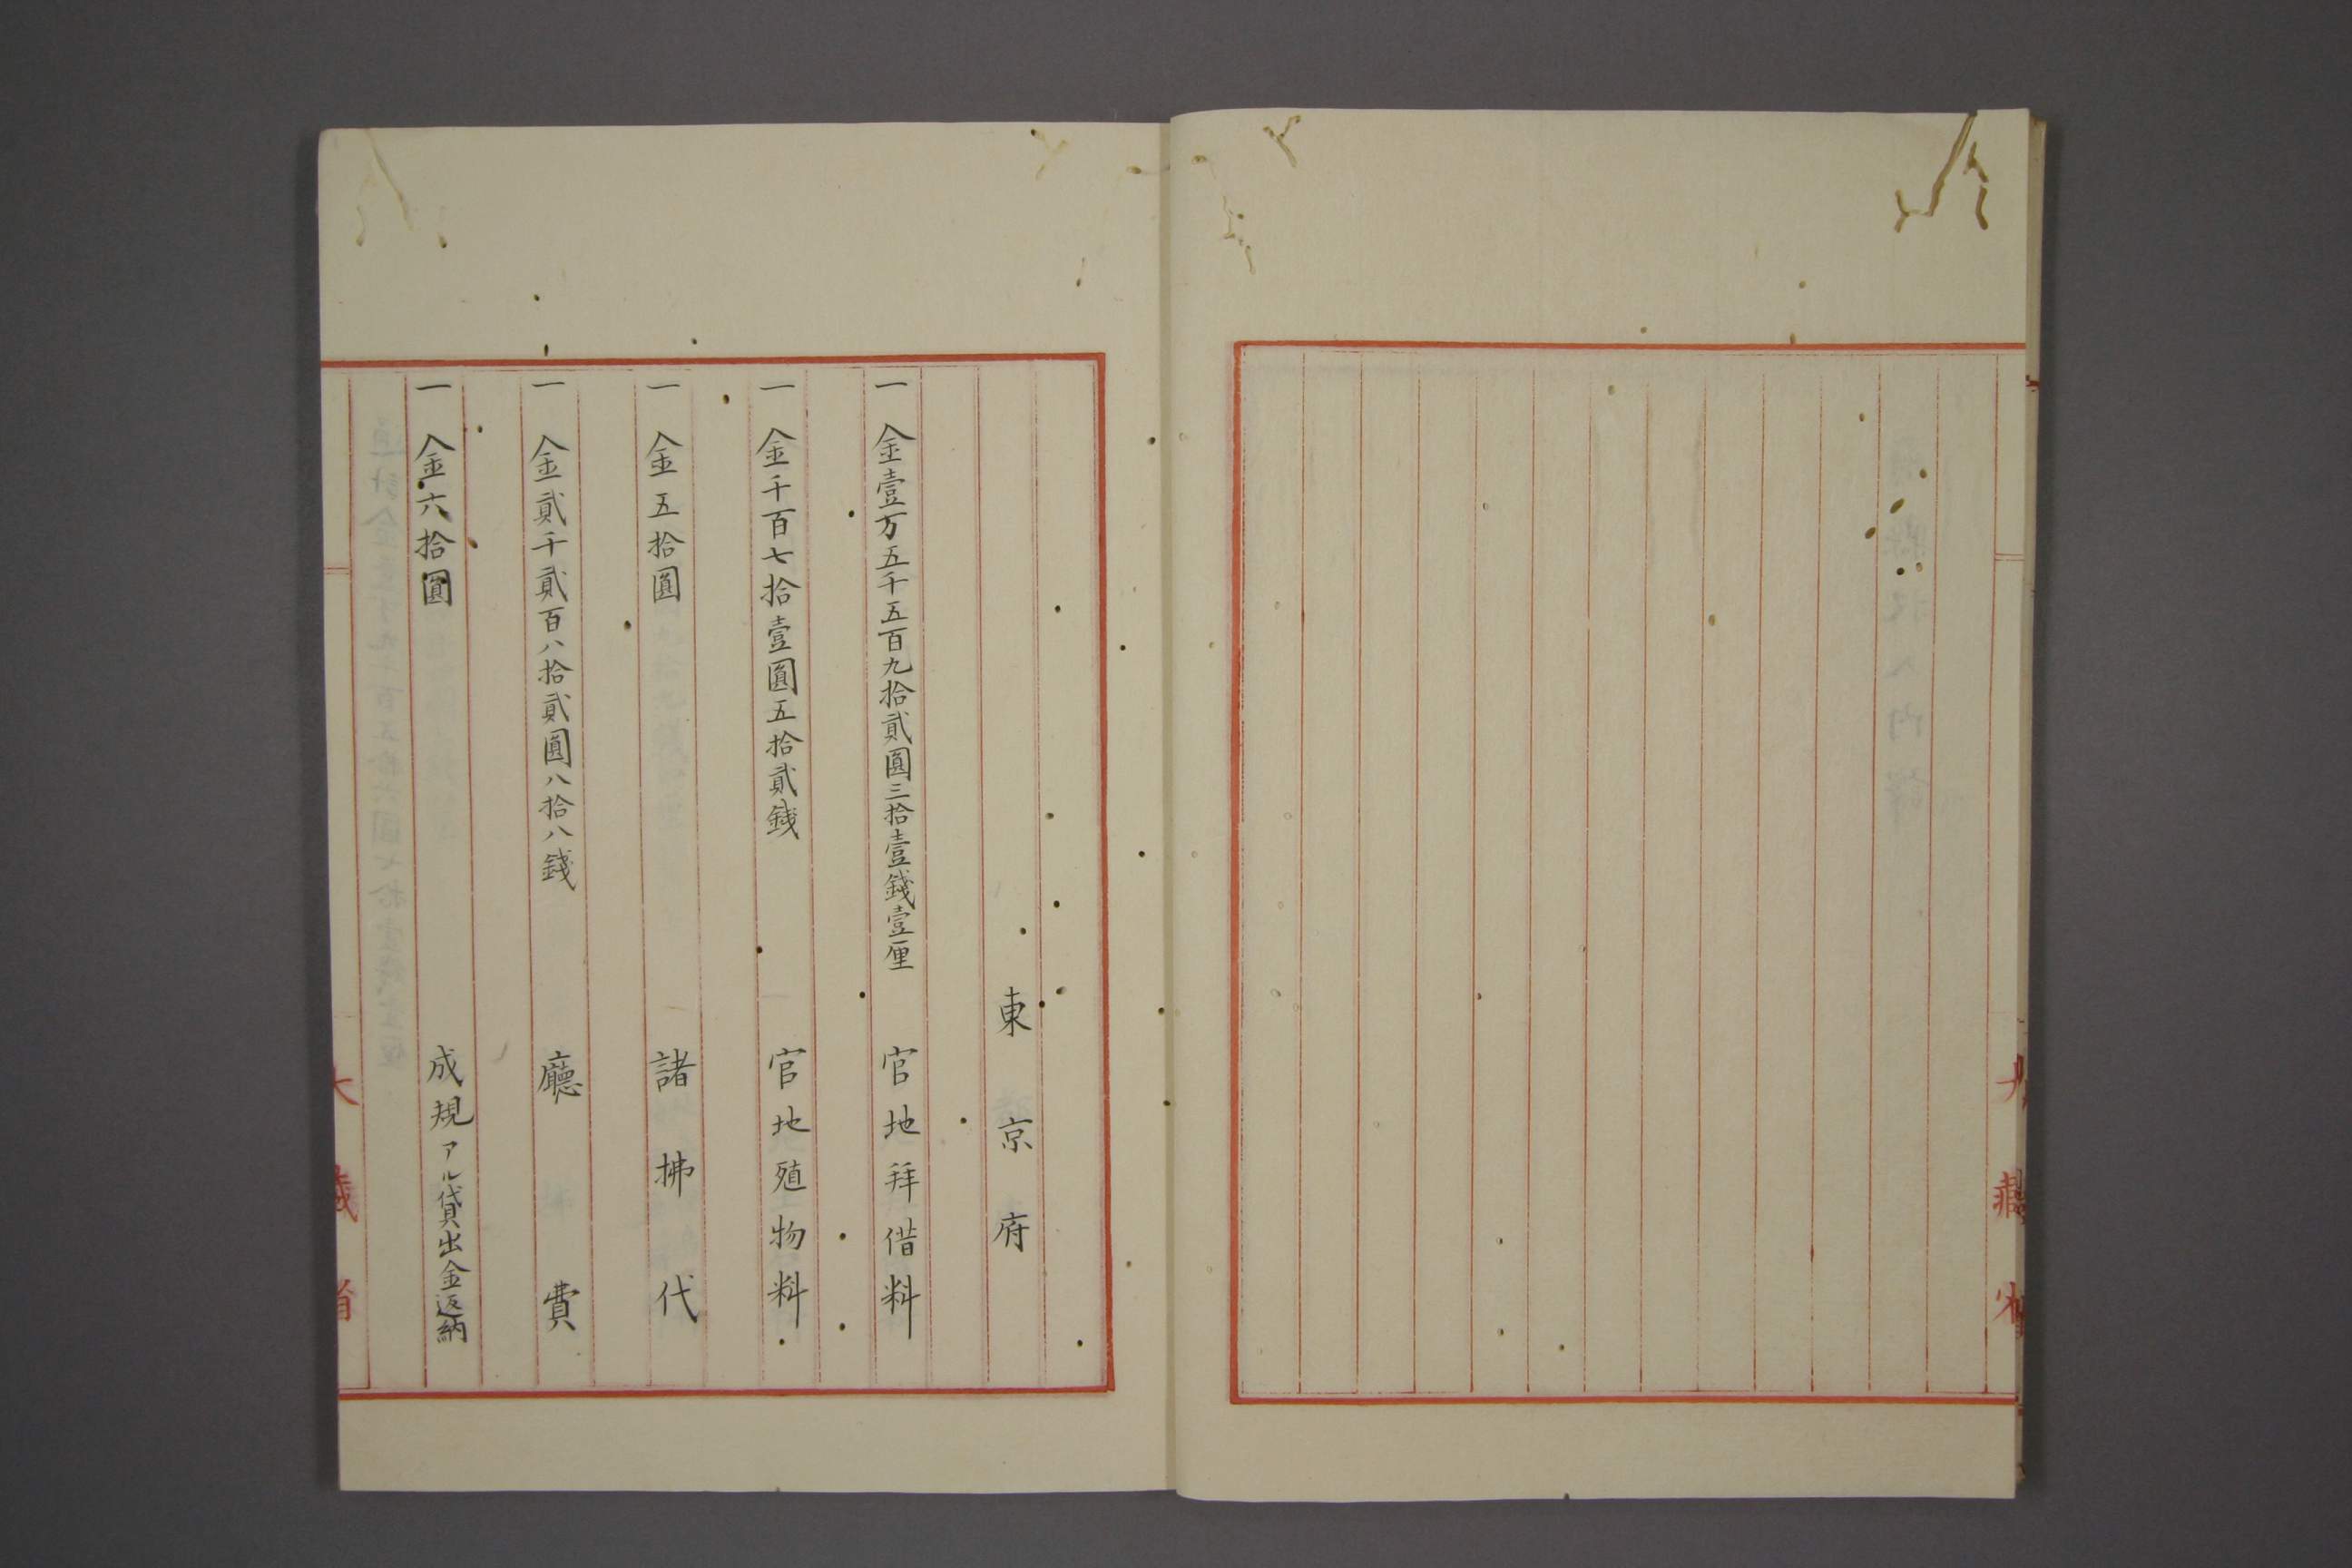 東京府
一金壹万五千五百九拾貳圓三拾壹錢壹厘 官地拜借料
一金千百七拾壹圓五拾貳錢 官地殖物料
一金五拾圓 諸拂代
一金貳千貳百八拾貳圓八拾八錢 廳費
一金六拾圓 成規アル貸出金返納
大藏省